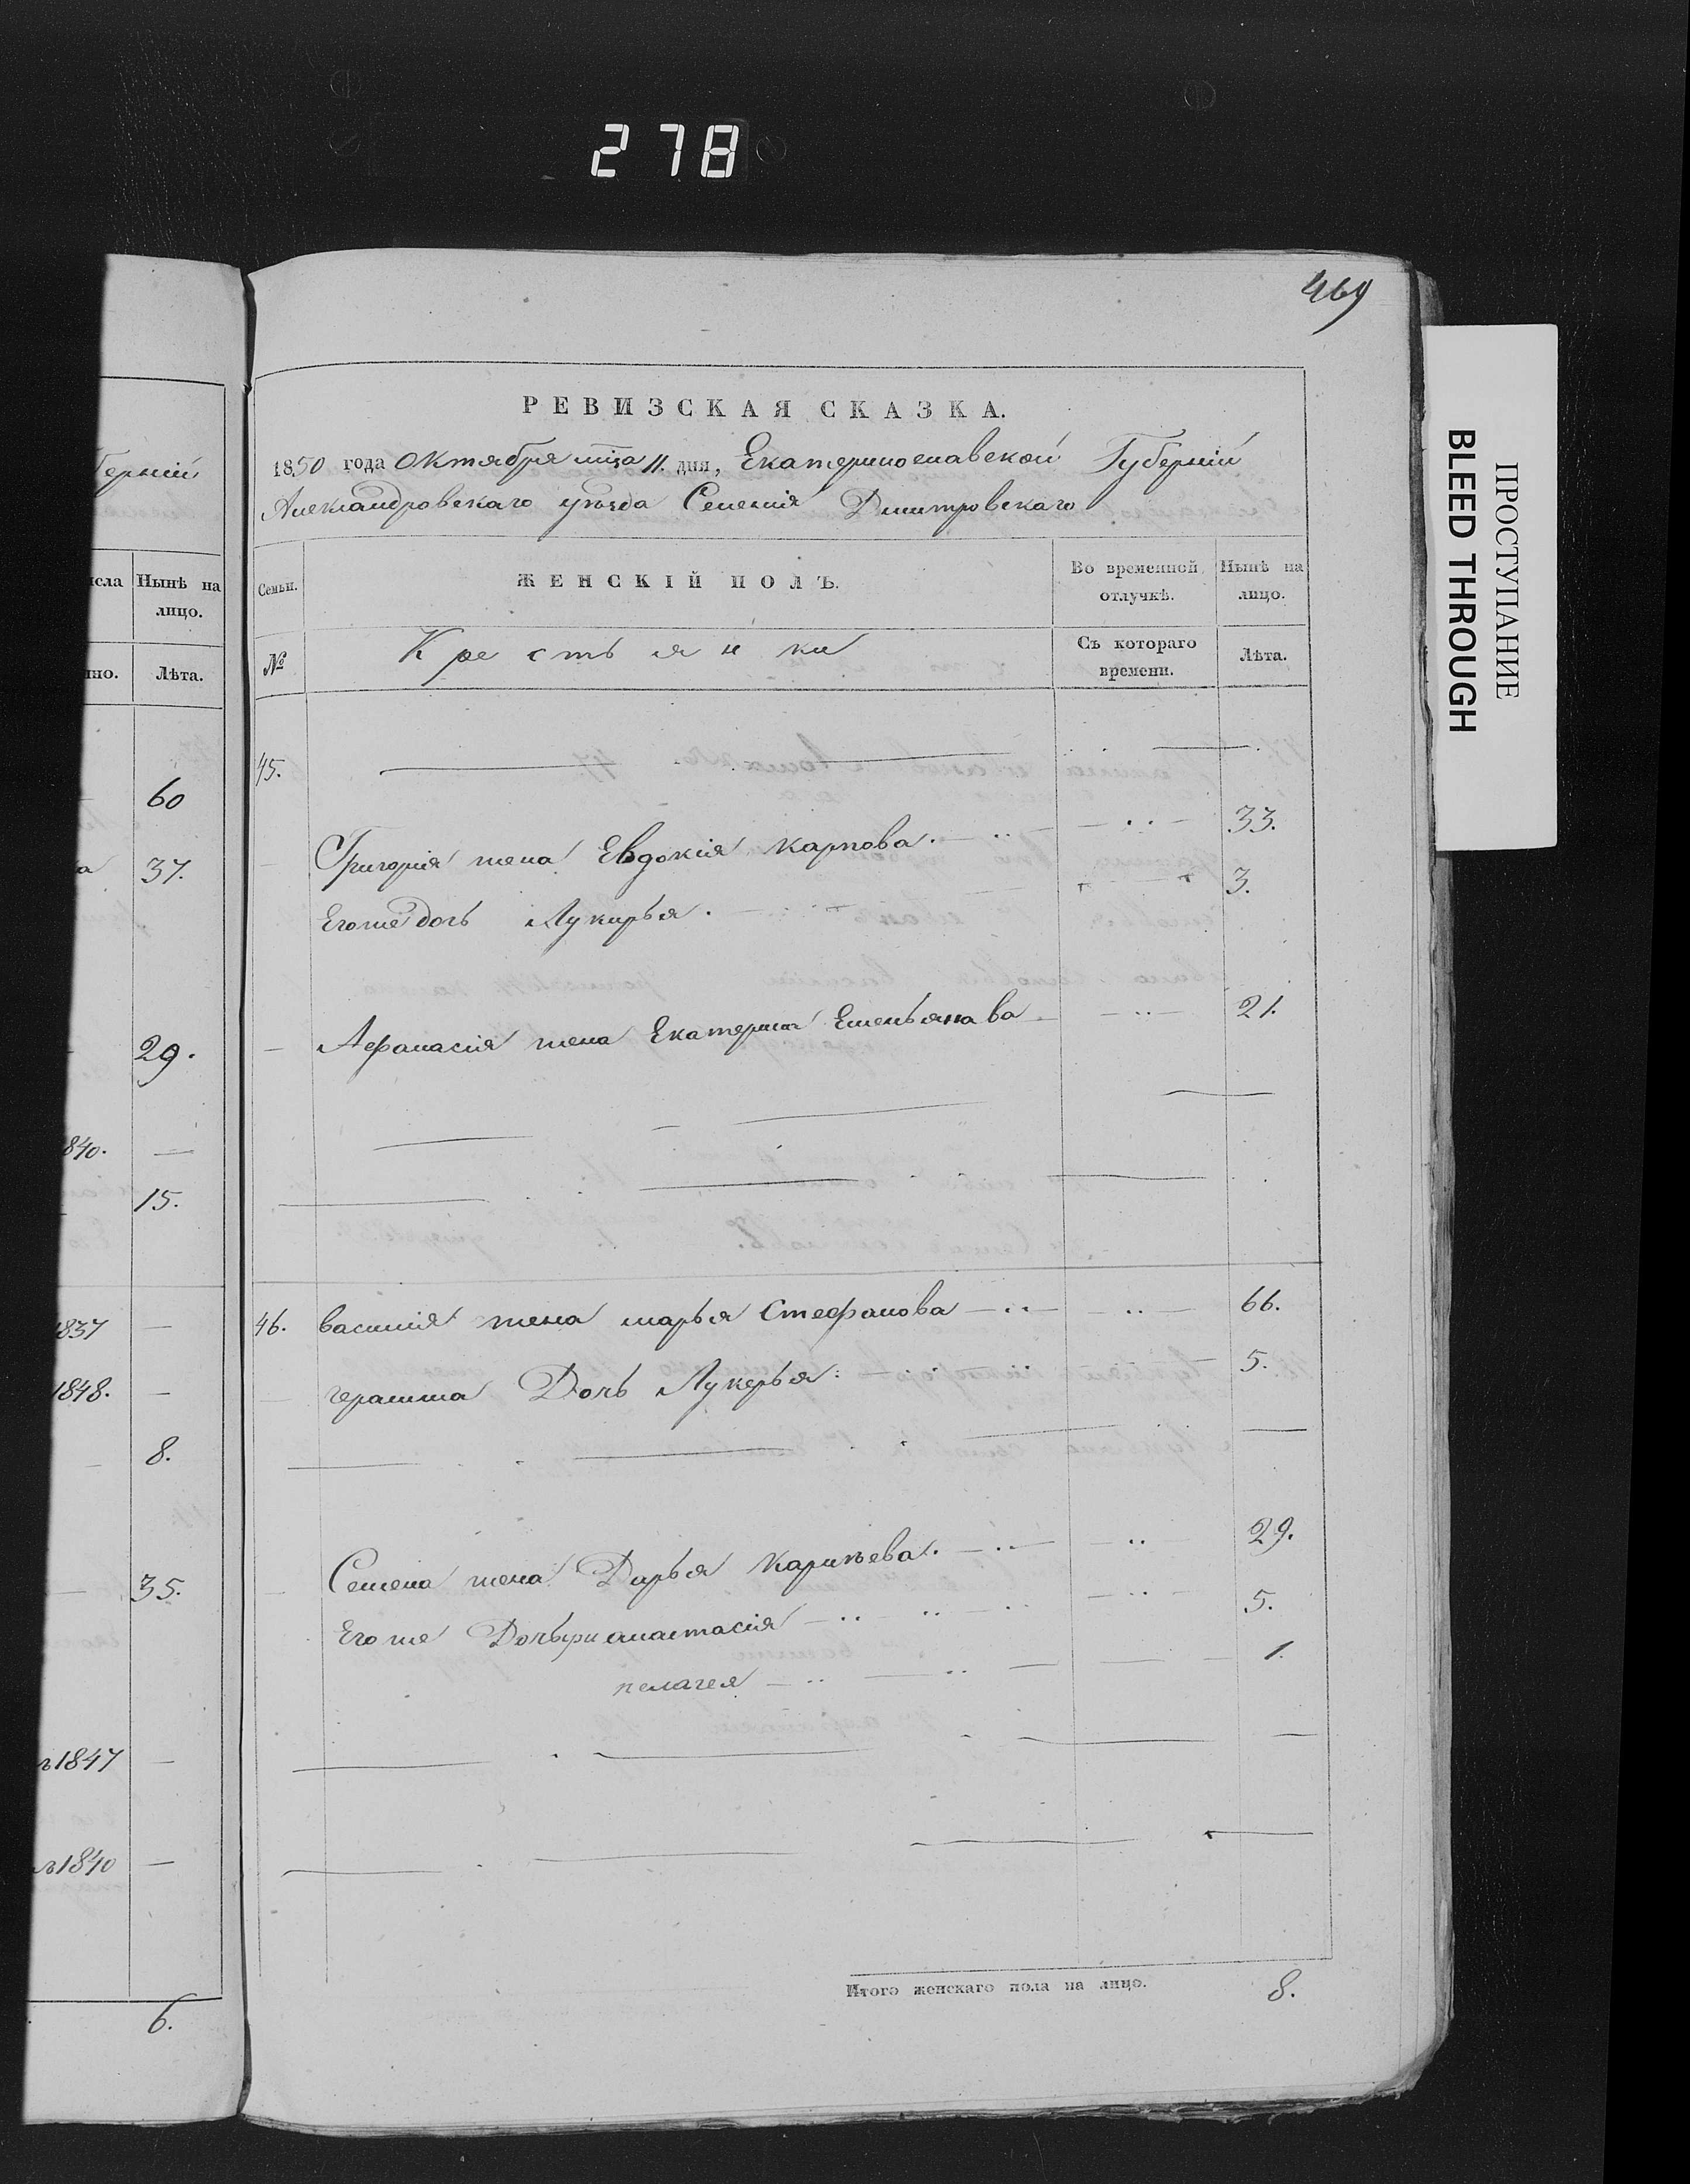 278
469
РЕВИЗСКАЯ СКАЗКА.
1850 года Октября мца 11. дня, Екатеринославской Губерніи
Александровскаго уѣзда Селенія Дмитровскаго
Семьи.
ЖЕНСКІЙ ПОЛЪ.
Во временной отлучкѣ.
Нынѣ на лицо.
№
Крестьянки
Съ котораго времени.
Лѣта.
45.
Григорія жена Евдокія Карпова. 33.
Егоже дочь Лукирья. 3.
Афанасія жена Екатерина Емельянава 21.
46. василія жена марья Стефанова 66.
герасима Дочь Лукерья 5.
Семена жена Дарья Карпѣева. 29.
Егоже Дочьри анастасія 5.
пелагея 1.
Итого женскаго пола на лицо. 8.
берніи
исла
Нынѣ на лицо.
но.
Лѣта.
60
37.
29.
840.
15.
1837
1848.
8.
35.
1847
1840
6.
ПРОСТУПАНИЕ
BLEED THROUGH